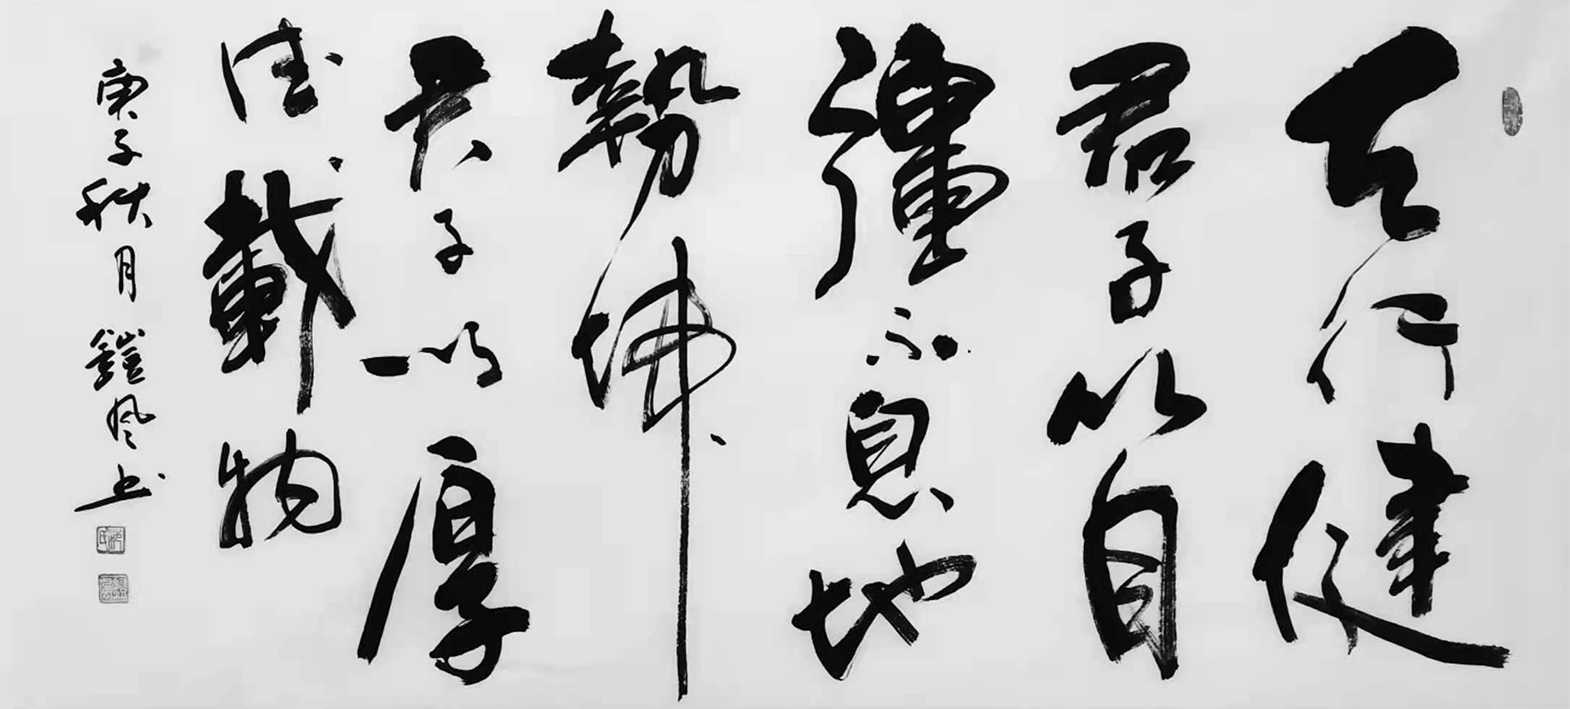 天行健
君子以自
彊不息地
勢坤
君子以厚
德載物
庚子秋月鎧风书